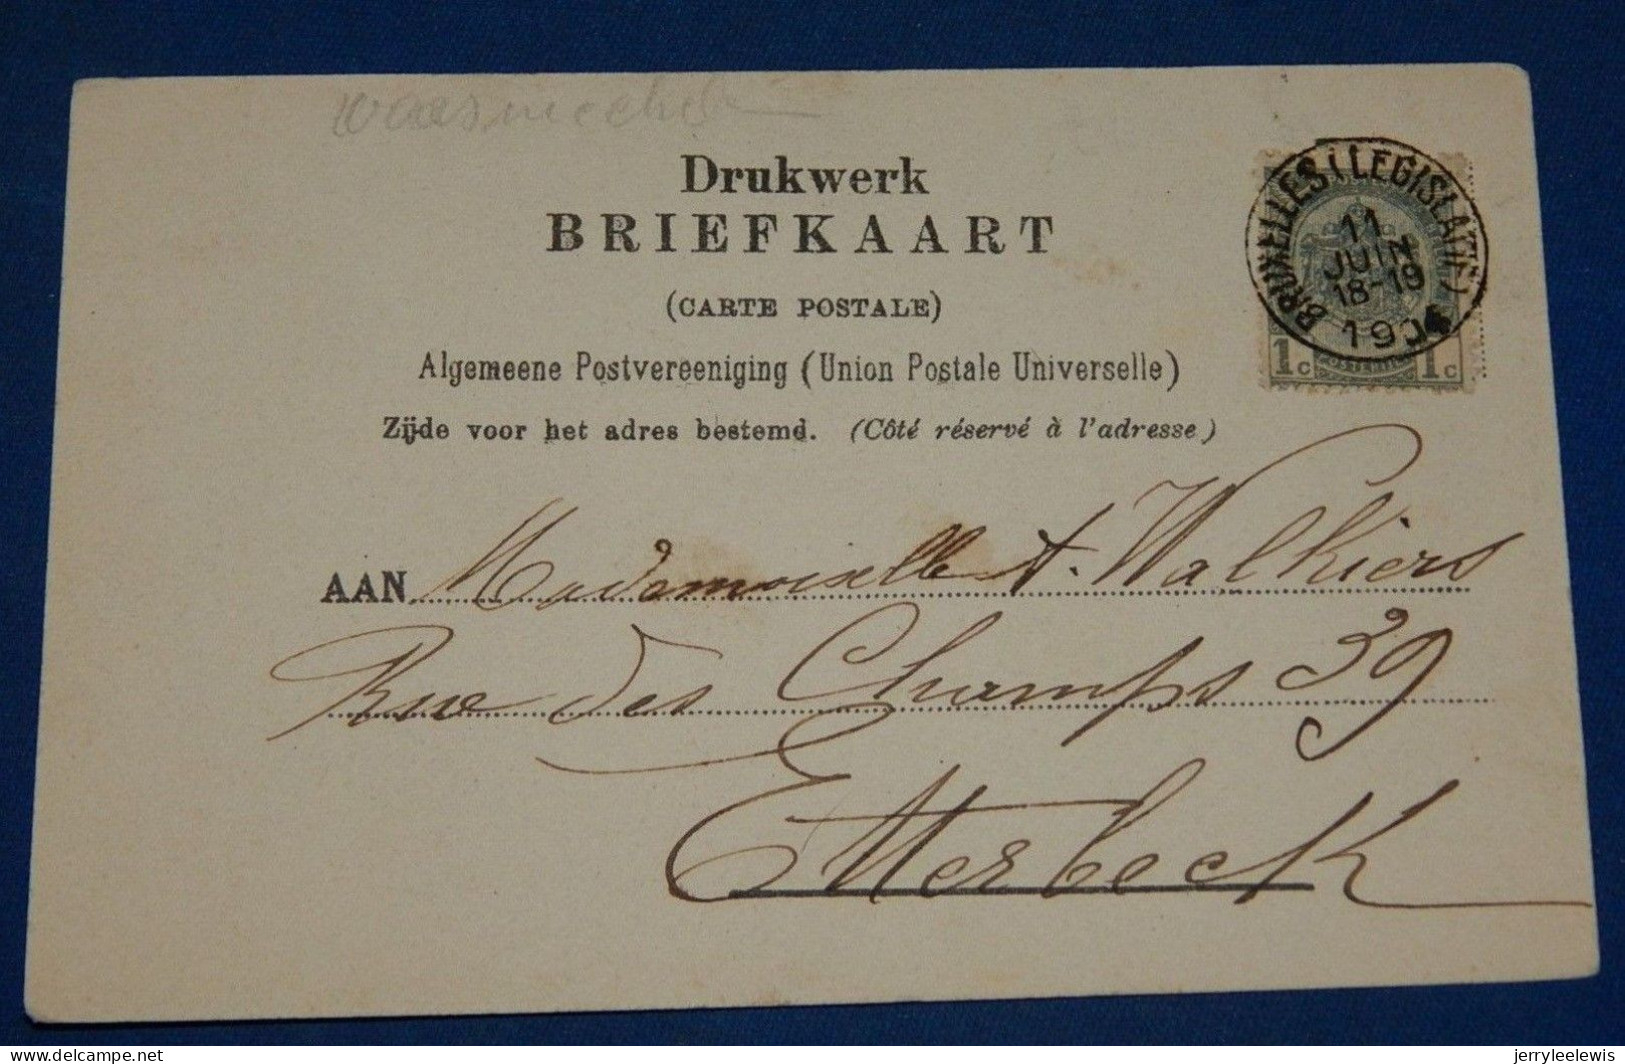 Drukwerk
BRIEFKAART
(CARTE POSTALE)
Algemeene Postvereeniging (Union Postale Universelle)
Zijde voor het adres bestemd. (Côté réservé à l'adresse)
BRUXELLES (LEGISLATIF)
11
JUIN
18-19
1904
1c 1c
AAN Mademoiselle A. Walkiers
Rue des Champs 39
Etterbeck
delcampe.net
jerryleelewis